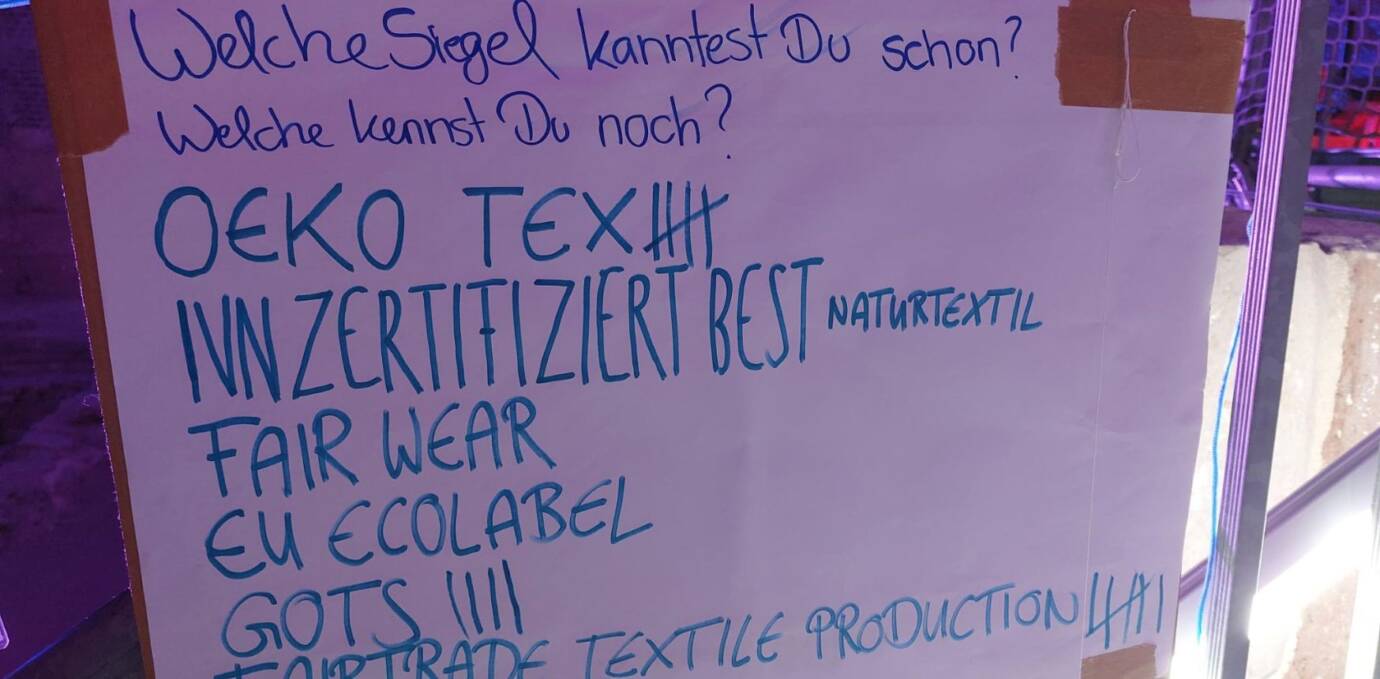 Welche Siegel kanntest Du schon?
Welche kennst Du noch?
OEKO TEX
IVN ZERTIFIZIERT BEST NATURTEXTIL
FAIR WEAR
EU ECOLABEL
GOTS
FAIRTRADE TEXTILE PRODUCTION